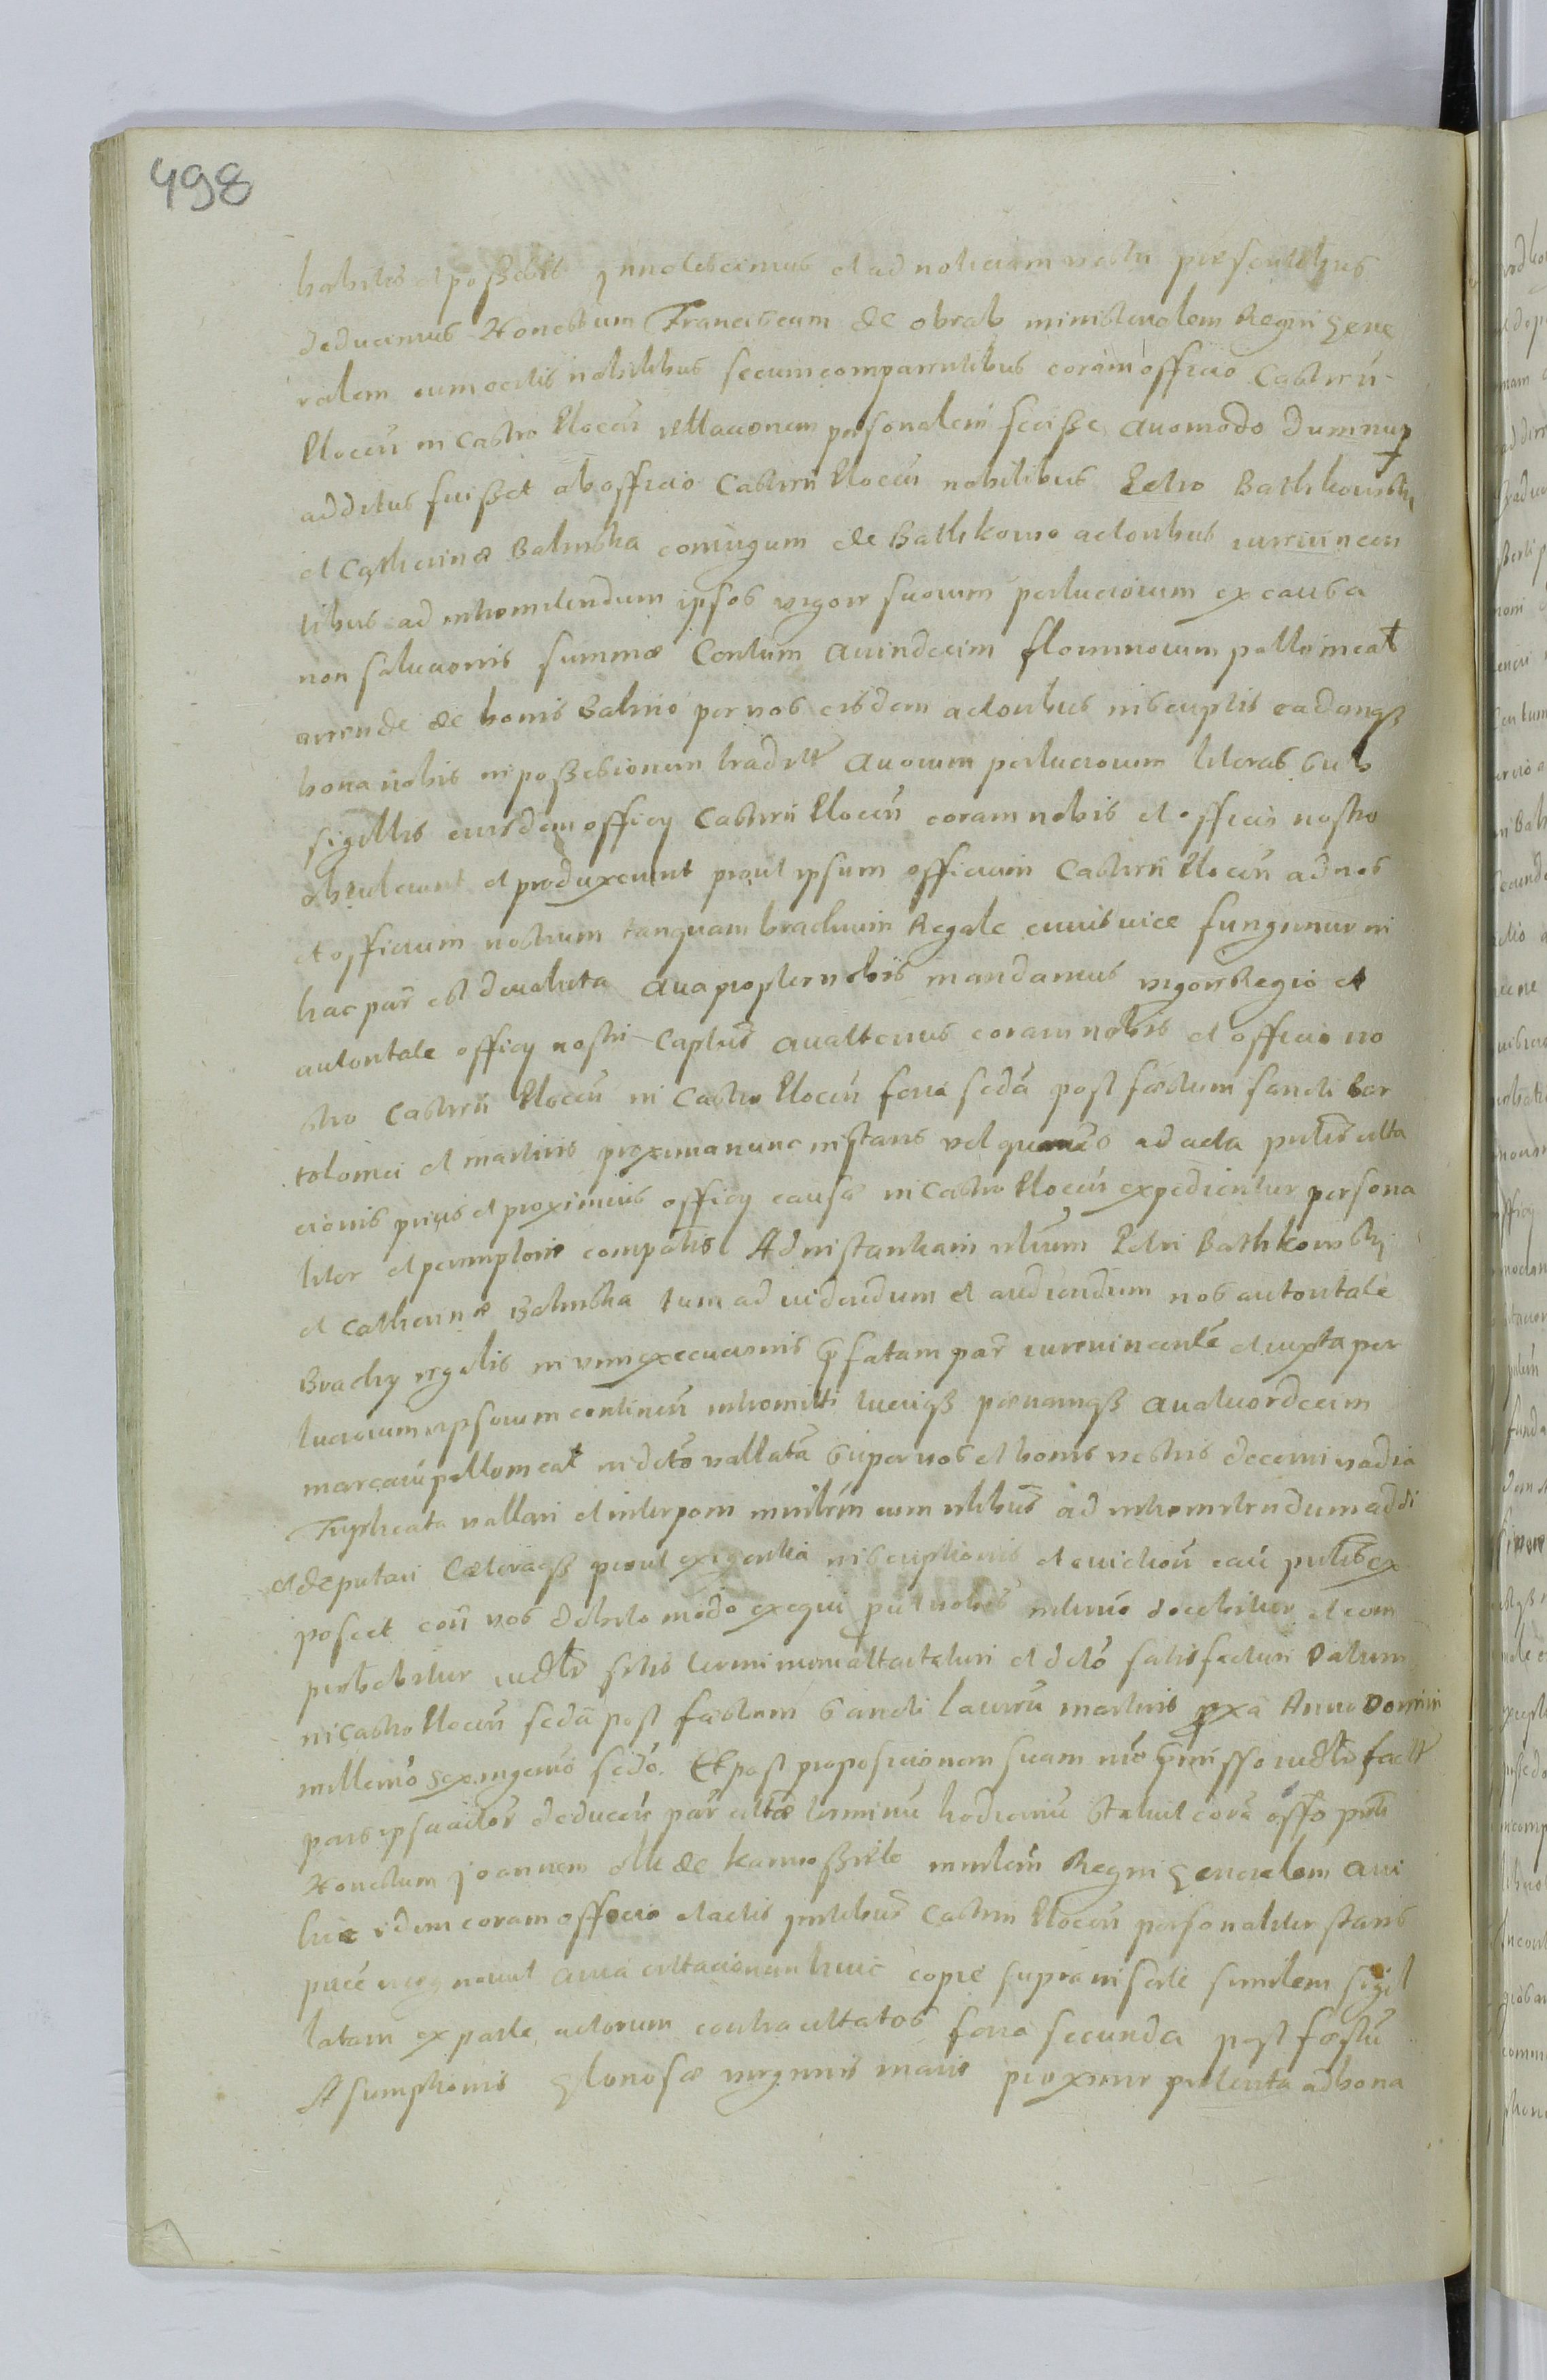 498
habitis et possessis innotescimus et ad noticiam vestri presentibus
deducimus Honestum Franciscum de obrab ministerialem Regni gene
ralem cum certis nobilibus secum comparentibus coram officio Castren
Plocen in Castro Plocen rellacionem personalem fecisse Quomodo dum nup
additus fuisset ab officio Castren Plocen nobilibus Petro Bathkowski
et Catherinæ Balinska coniugum de Bathkowo actoribus iurevincen
tibus ad intromittendum ipsos vigore suorum perlucrorum ex causa
non solucionis summæ Centum Quindecim florenorum pollonical
arende de bonis Balino per vos eisdem actoribus inscriptis eademqß
bona nobis in possessionem tradit Quorum perlucrorum literas sub
sigillis eiusdem officy Castren Plocen coram nobis et officio nostro
obtulerunt et produxerunt prout ipsum officium Castren Plocen ad nos
et officium nostrum tanquam brachium Regale cuius vice fungimur in
hac par est devoluta Quapropter vobis mandamus vigore Regio et
autoritate officy nostri Captus Quattenus coram nobis et officio no
stro Castren Plocen in Castro Plocen feria scda post festum sancti Bar
tolomei et martiris proxima nunc instans vel quando ad acta putis citta
cionis prius et proximius officy causæ in Castro Plocen expedientur persona
liter et peremptorie compatis Ad instantiam nlium Petri Bathkowsky
et Catherinæ Balinska tum ad videndum et audiendum nos autoritate
Brachy regalis in vim execucionis pfatam par iurevincente et iuxta per
lucrorum ipsorum continen intromitti lucriqß pænamqß Quatuordecim
marcaru pollonical in dcto vallata super vos et bonis vestris decerni vadia
Tryplicata vallari et interponi ministrm cum nlibus ad intromittendum addi
et deputari Cæteraqß prout exigentia inscriptionis et evictioni eau putis ex
poscet con vos debito modo exequi put vobis interius docebitur et com
probabitur iudlr sitis terminum attactaturi et dcto satisfacturi Datum
in Castro Plocen scda post festum Sancti Laurrn martiris pxa Anno Domini
millemo sexingemo scdo. Et post proposicionem suam mo pmisso iudlr fact
pars ipsa actor deducen par citatæ terminu hodiernu statuit cora offo pnti
Honestum Joannem olk de karwosieki mnlem Regni generalem Qui
hic idem coram officio et actis pntibus Castren Plocen personaliter stans
puce recognovit Quia cittacionem huic copie supra insertæ similem sigil
latam ex parte actorum contra cittatos feria secunda post festu
Asumptionis gloriosæ virginis mariæ proxime preterita ad bona